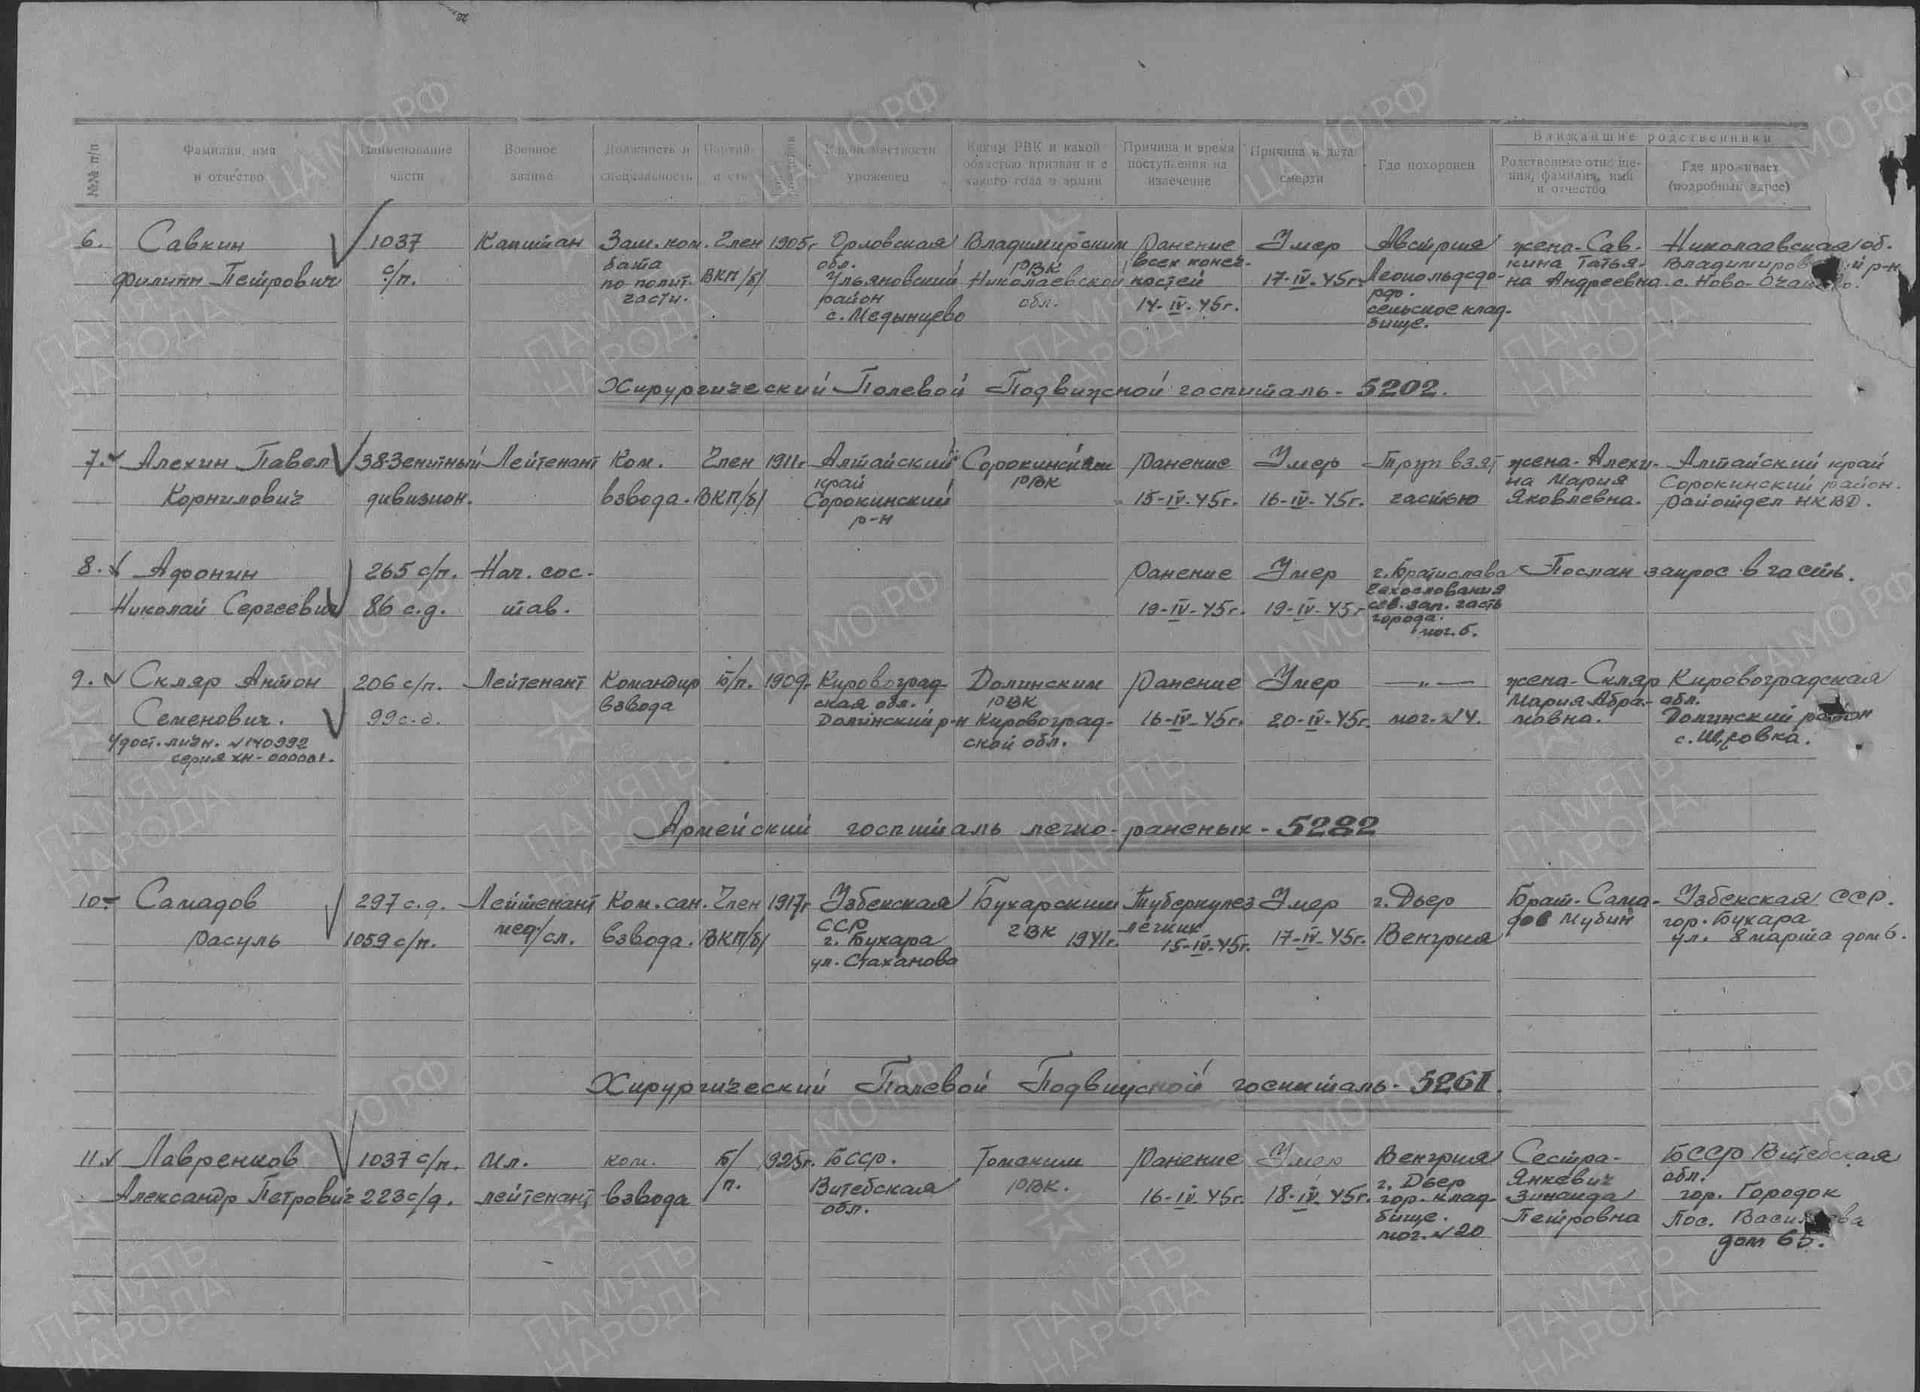 №№ п/п
Фамилия, имя и отчество
Наименование части
Военное звание
Должность и специальность
Партий-
Какой местности уроженец
Каким РВК и какой областью призван и с какого года в армии
Причина и время поступления на излечение
Причина и дата смерти
Где похоронен
Ближайшие родственники
Родственные отноше-
ния, фамилия, имя
и отчество
Где проживает
(подробный адрес)
6.
Савкин
Филипп Петрович
1037
с/п.
Капитан
Зам. ком.
бата
по полит.
части.
Член
ВКП/б/
1905г
Орловская
обл.
Ульяновский
район
с. Медынцево
Владимирским
РВК
Николаевской
обл.
Ранение
всех конеч-
ностей
14-IV-45г.
Умер
17-IV-45г.
Австрия
Леопольдсдо-
рф.
сельское клад-
бище.
жена-Сав-
кина Татья-
на Андреевна
Николаевская об.
с. Ново-
Хирургический Полевой Подвижной госпиталь-5202.
7.
Алехин Павел
Корнилович
38 Зенитный
дивизион.
Лейтенант
Ком.
взвода.
Член
ВКП/б/
1911г
Алтайский
край
Сорокинский
р-н
Сорокинским
РВК
Ранение
15-IV-45г.
Умер
16-IV-45г.
Труп взят
частью
жена-Алехи-
на Мария
Яковлевна.
Алтайский край
Сорокинский район.
райотдел НКВД.
8.
Афонин
Николай Сергеевич
265 с/п.
86 с.д.
Нач. сос-
тав.
Ранение
19-IV-45г.
Умер
19-IV-45г
г. Братислава
Чехословакия
сев. зап. часть
города.
мог. 6.
Послан запрос в часть.
9.
Скляр Антон
Семенович.
Удост. личн. №140992
серия ХН-000001.
206 с/п.
99 с.д.
Лейтенант
Командир
взвода
б/п.
1909г
Кировоград-
ская обл.
Долинский р-н
Долинским
РВК
Кировоград-
ской обл.
Ранение
16-IV-45г.
Умер
20-IV-45г.
—„—
мог. №4.
жена-Скляр
Мария Абра-
мовна.
Кировоградская
обл.
Долинский район
Армейский госпиталь легко-раненых-5282
10
Самадов
Расуль
297 с.д.
1059 с/п.
Лейтенант
мед/сл.
Ком. сан.
взвода.
Член
ВКП/б/
1917г
Узбекская
ССР
г. Бухара
ул. Стаханова
Бухарским
ГВК
1941г.
Туберкулез
легких
15-IV-45г.
Умер
17-IV-45г.
г. Дьер
Венгрия
Брат-Сама-
дов Мубин
Узбекская ССР.
гор. Бухара
ул. 8 марта дом 6.
Хирургический Полевой Подвижной госпиталь-5261.
11.
Лавренков
Александр Петрович
1037 с/п.
223 с/д.
Мл.
лейтенант
ком.
взвода
б/
п.
925г.
БССР.
Витебская
обл.
РВК.
Ранение
16-IV-45г.
Умер
18-IV-45г.
Венгрия
г. Дьер
гор. клад-
бище.
мог. №20
Сестра-
Янкевич
Зинаида
Петровна
БССР Витебская
обл.
гор. Городок
Пос.
дом 65.
ЦАМО.РФ
ПАМЯТЬ
НАРОДА